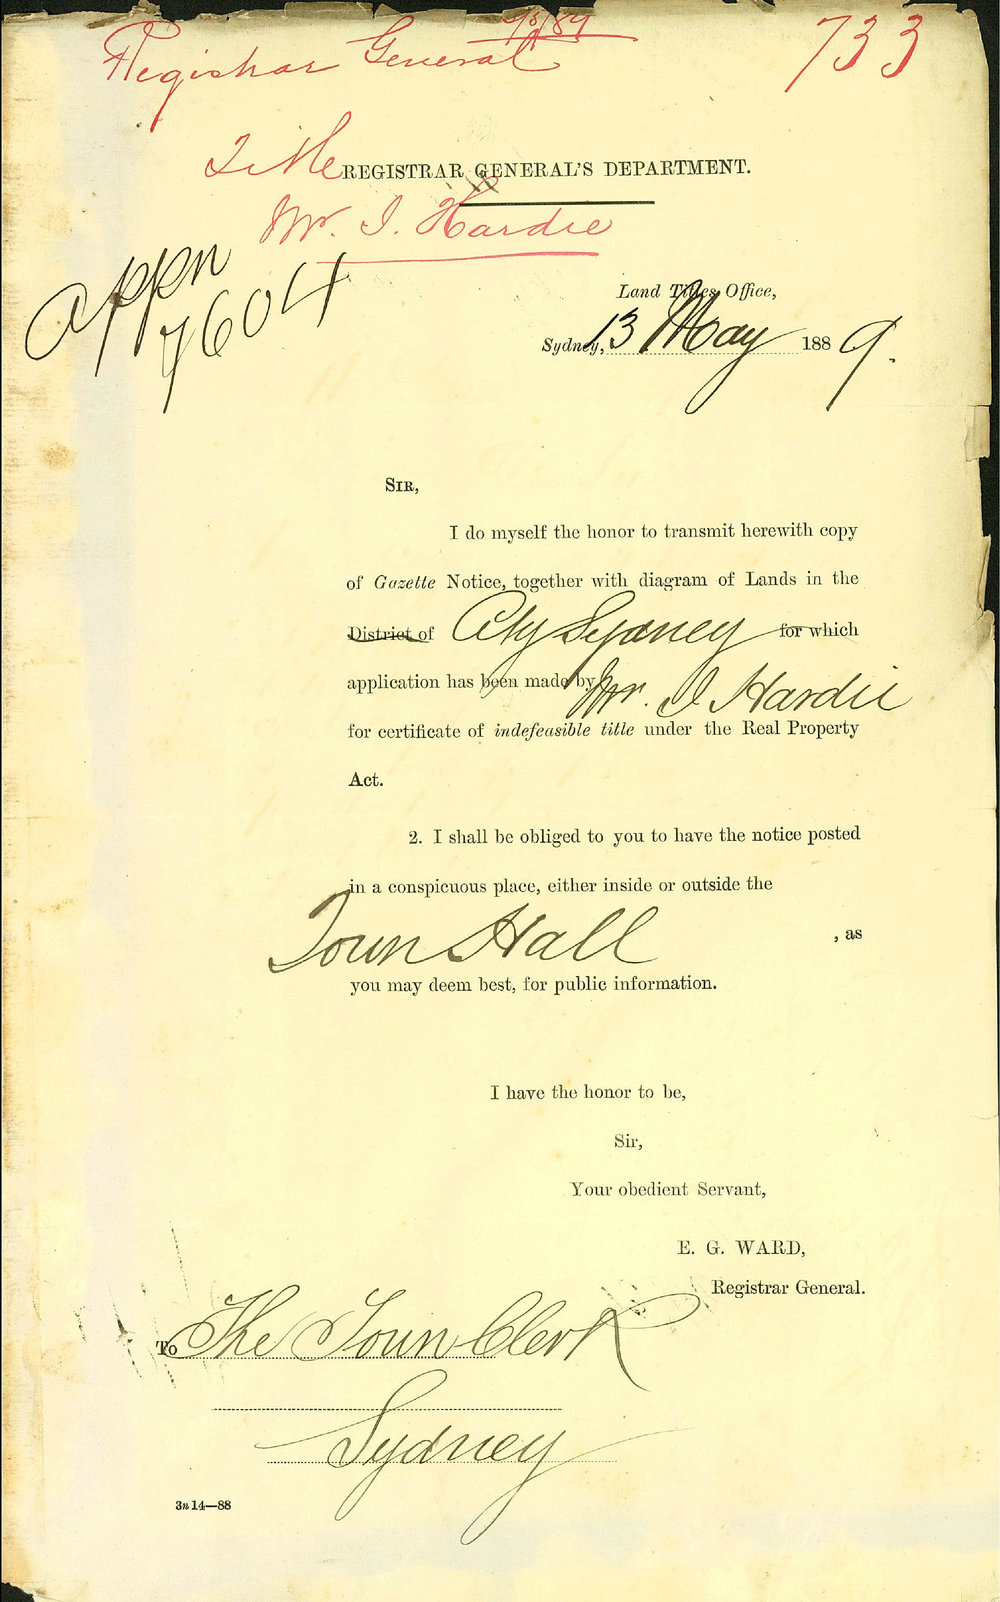 Registrar General
733
Title REGISTRAR GENERAL'S DEPARTMENT.
Mr. I. Hardie
Appn
7604
Land Titles Office,
Sydney, 13 May 1889.
SIR,
I do myself the honor to transmit herewith copy
of Gazette Notice, together with diagram of Lands in the
District of City Sydney for which
application has been made by Mr. I Hardie
for certificate of indefeasible title under the Real Property
Act.
2. I shall be obliged to you to have the notice posted
in a conspicuous place, either inside or outside the
Town Hall , as
you may deem best, for public information.
I have the honor to be,
Sir,
Your obedient Servant,
E. G. WARD,
Registrar General.
To The Town Clerk
Sydney
3n14—88